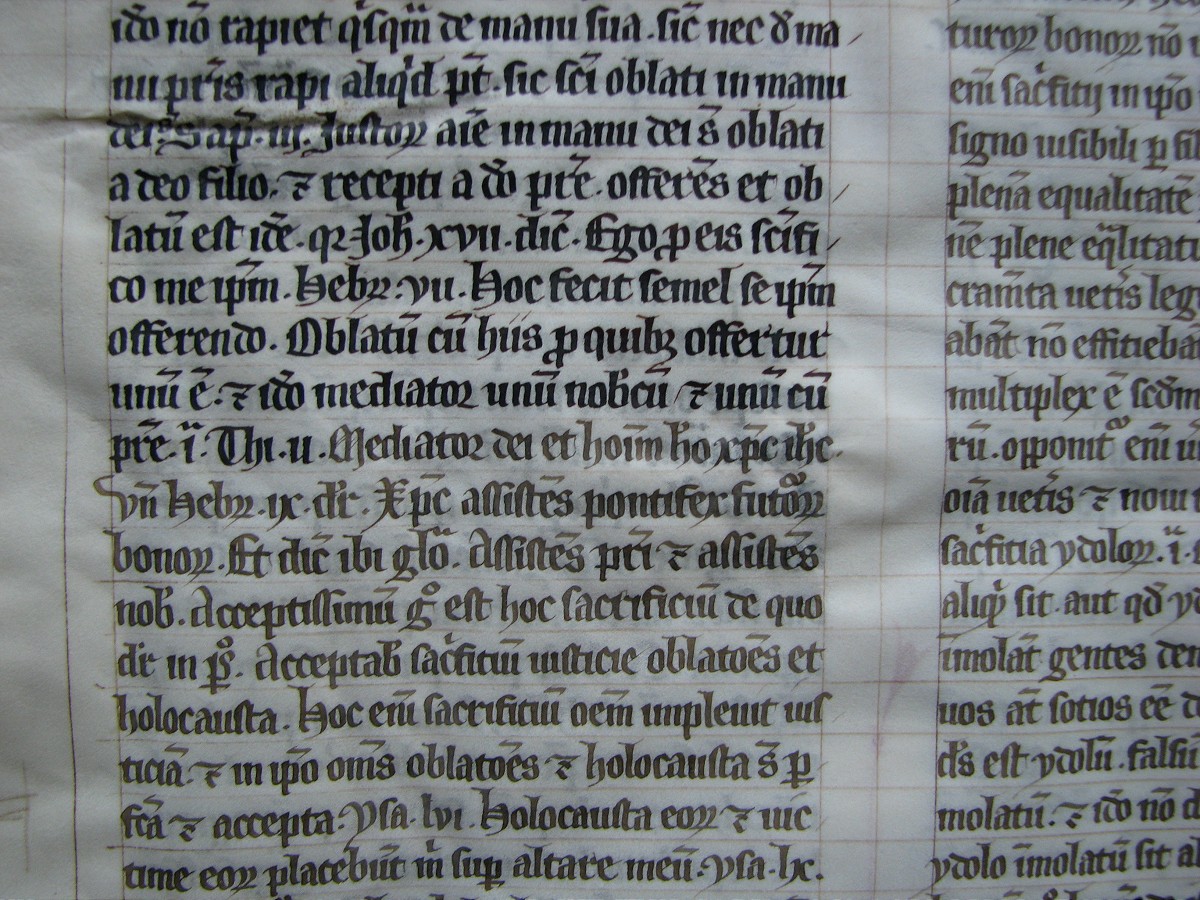 ido nō rapiet q̇sqm̄ de manu sua. sic̄ nec d̄ ma
nu pr̄is rapi aliq̇d pt̄. sic sc̄i oblati in manu
dei. Sap̄. iij. Justoꝝ aīe in manu dei s̄ oblati
a deo filio. ⁊ recepti a dō pr̄e. offerēs et ob
latū est idē. qꝛ Joh̄. xvii. dic̄. Ego ꝓ eis sc̄ifi
co me ip̄m. Hebꝝ. vii. Hoc fecit semel se ip̄m
offerendo. Oblatū cū hiis ꝓ quibꝫ offertur
unū ē. ⁊ ido mediator unū nob̄cū ⁊ unū cū
pr̄e. i. Thi. ii. Mediator dei et hoīm ho xp̄c ih̄c.
Vn̄ Hebꝝ. ix. dr̄. Xp̄c assistēs pontifex futoꝝ
bonoꝝ. Et dic̄ ibi glō. Assistēs pr̄i ⁊ assistēs
nob̄. Acceptissimū gͦ est hoc sacrificiū de quo
dr̄ in pſ̄. Acceptab̄ sac̍fitiū iusticie oblatōes et
holocausta. Hoc em̄ sacrificiū oēm impleuit ius
ticiā. ⁊ in ip̄o om̄s oblatōes ⁊ holocausta s̄ ꝑ
fc̄a ⁊ accepta. ysa. lvi. Holocausta eoꝝ ⁊ uic
time eoꝝ placebūt m̄ suꝑ altare meū. ysa. lx.
turoꝝ bonoꝝ. nō
em̄ sac̍fitij in ip̄o
signo uisibili ꝑ
plenā equalitatē
nē plene eq̄litati
cram̄ta uet̍is leg
abāt nō effitiebāt
multiplex ē scd̄m
rū. opponit᷑ em̄
oīa uet̍is ⁊ noui
sac̍fitia ydoloꝝ. i.
aliq̇ sit. aut qd̄
īmolāt gentes
uos āt sotios eē
d̍s est ydolū. falsi
molatū. ⁊ ido nō
ydolo īmolatū sit